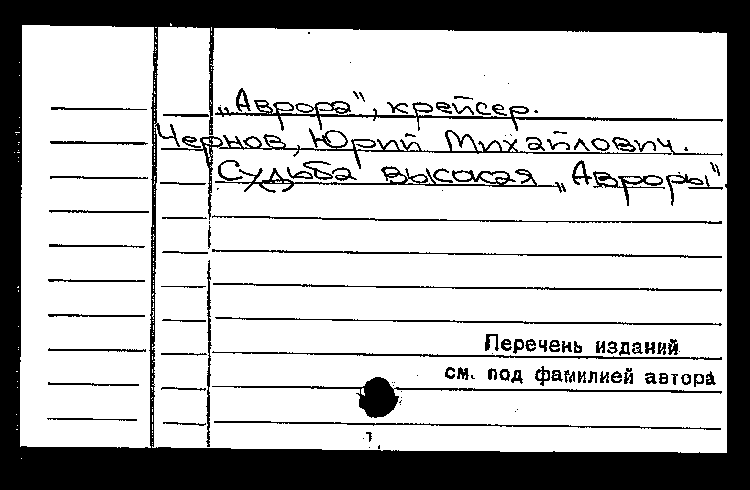 „Аврора", крейсер.
Чернов, Юрий Михайлович.
Судьба высокая „Авроры".
Перечень изданий
см. под фамилией автора